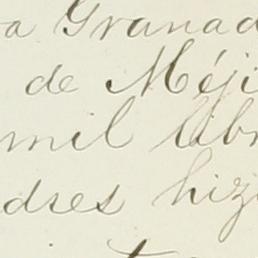 a Granad
de Méji
mil libr
dres hizi